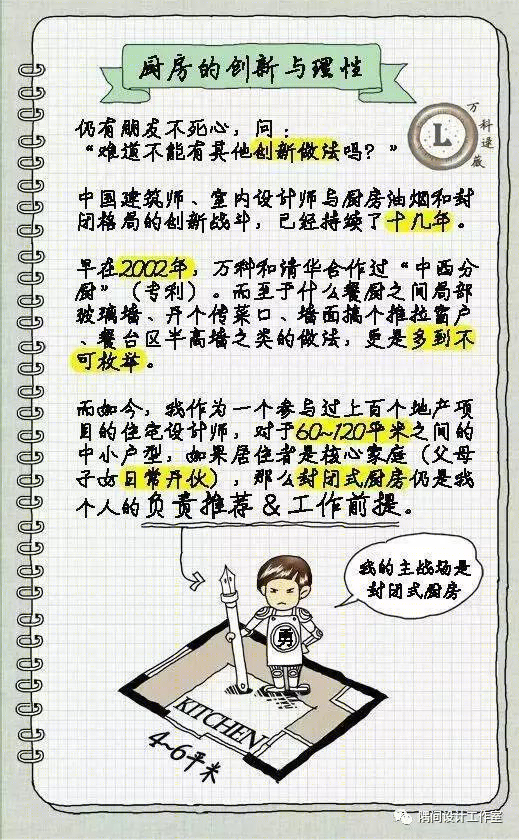 厨房的创新与理性
万科逯薇
L
仍有朋友不死心，问：
“难道不能有其他创新做法吗？”
中国建筑师、室内设计师与厨房油烟和封
闭格局的创新战斗，已经持续了十几年。
早在2002年，万科和清华合作过“中西分
厨”（专利）。而至于什么餐厨之间局部
玻璃墙、开个传菜口、墙面搞个推拉窗户
、餐台区半高墙之类的做法，更是多到不
可枚举。
而如今，我作为一个参与过上百个地产项
目的住宅设计师，对于60~120平米之间的
中小户型，如果居住者是核心家庭（父母
子女日常开伙），那么封闭式厨房仍是我
个人的负责推荐&工作前提。
我的主战场是
封闭式厨房
勇
KITCHEN
4~6平米
陼间设计工作室